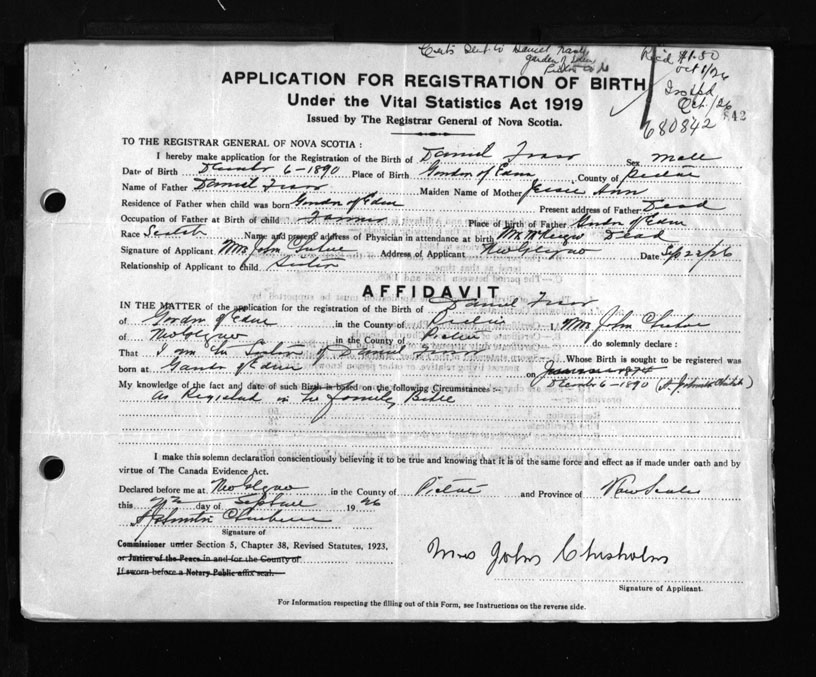 Certs Sent to Daniel Fraser
Garden of Eden
Pictou Co NS
Rec'd $1.50
Oct 8/26
Issued
Oct. /26
680842
842
APPLICATION FOR REGISTRATION OF BIRTH
Under the Vital Statistics Act 1919
Issued by The Registrar General of Nova Scotia.
TO THE REGISTRAR GENERAL OF NOVA SCOTIA :
I hereby make application for the Registration of the Birth of Daniel Fraser Sex Male
Date of Birth December 6-1890 Place of Birth Garden of Eden County of Pictou
Name of Father Daniel Fraser Maiden Name of Mother Jessie Ann
Residence of Father when child was born Garden of Eden Present address of Father Dead
Occupation of Father at Birth of child Farmer Place of Birth of Father Garden of Eden
Race Scotch Name and present address of Physician in attendance at birth Dead
Signature of Applicant Mrs John Chisholm Address of Applicant New Glasgow Date Sep 22/26
Relationship of Applicant to child Sister
AFFIDAVIT
IN THE MATTER of the application for the registration of the Birth of Daniel Fraser
of Garden of Eden in the County of Pictou I, Mrs John Chisholm
of New Glasgow in the County of Pictou do solemnly declare :
That I am the Sister of Daniel Fraser Whose Birth is sought to be registered was
born at Garden of Eden on December 6-1890
My knowledge of the fact and date of such Birth is based on the following Circumstances :-
as Registered in the family Bible
I make this solemn declaration conscientiously believing it to be true and knowing that it is of the same force and effect as if made under oath and by
virtue of The Canada Evidence Act.
Declared before me at New Glasgow in the County of Pictou and Province of Nova Scotia
this 22 day of September 1926
Signature of
Commissioner under Section 5, Chapter 38, Revised Statutes, 1923,
or Justice of the Peace in and for the County of
If sworn before a Notary Public affix seal.
Mrs John Chisholm
Signature of Applicant.
For Information respecting the filling out of this Form, see Instructions on the reverse side.